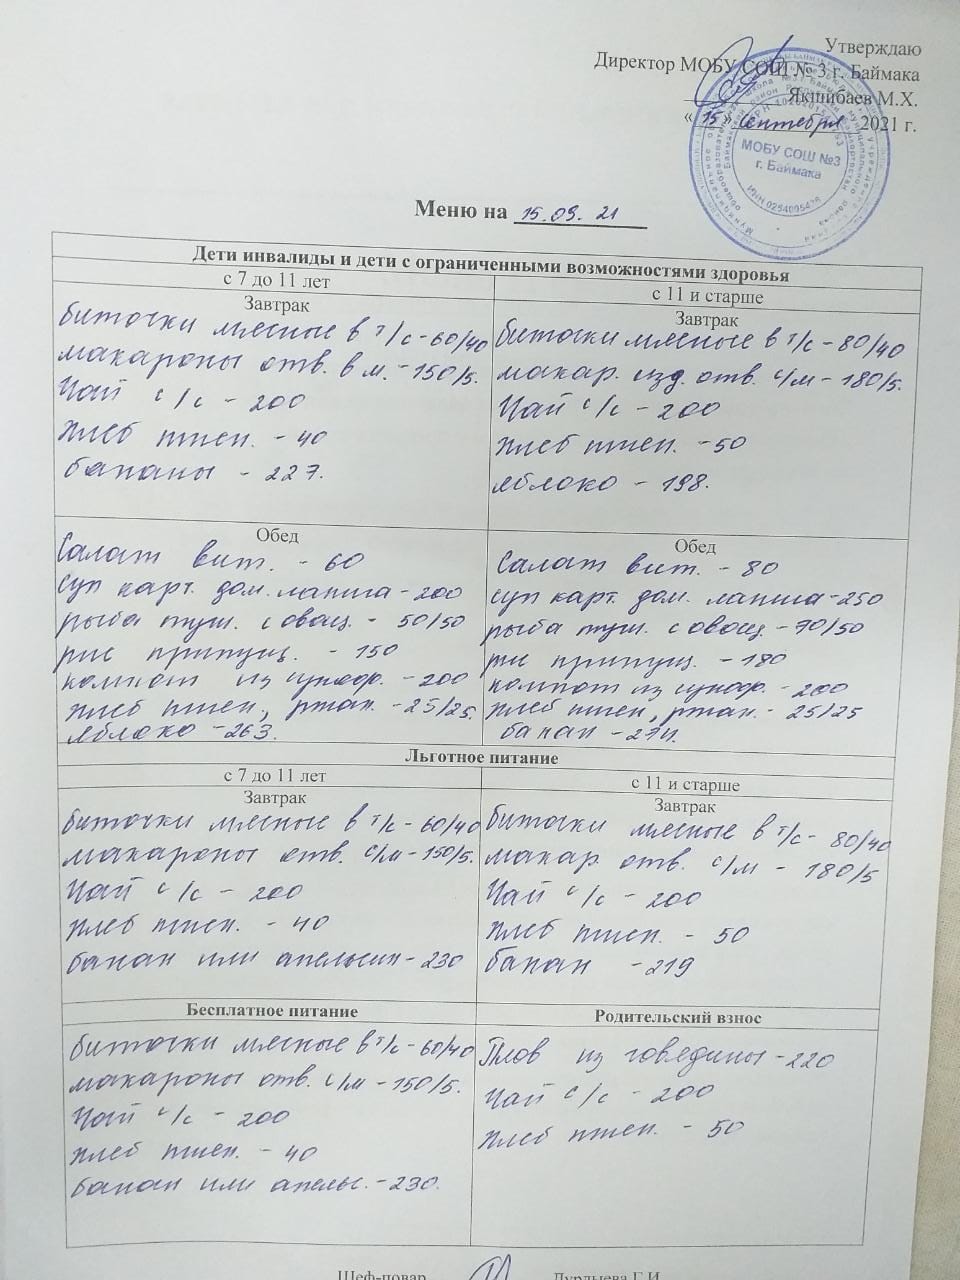 Утверждаю
Директор МОБУ СОШ № 3 г. Баймака
Якшибаев М.Х.
« 15 » сентября 2021 г.
МОБУ СОШ №3
г. Баймака
Меню на 15.09.21
Дети инвалиды и дети с ограниченными возможностями здоровья
с 7 до 11 лет
Завтрак
биточки мясные в т/с - 60/40
макароны отв. в м. - 150/5.
Чай с/с - 200
хлеб пшен. - 40
бананы - 227.
с 11 и старше
Завтрак
биточки мясные в т/с - 80/40
макар. изд. отв. с/м - 180/5.
Чай с/с - 200
хлеб пшен. - 50
яблоко - 198.
Обед
Салат вит. - 60
суп карт. дом. лапша - 200
рыба туш. с овощ. - 50/50
рис припущ. - 150
компот из сухофр. - 200
хлеб пшен, ржан. - 25/25.
яблоко - 263.
Обед
Салат вит. - 80
суп карт. дом. лапша - 250
рыба туш. с овощ. - 70/50
рис припущ. - 180
компот из сухофр. - 200
хлеб пшен, ржан. - 25/25
банан -
Льготное питание
с 7 до 11 лет
Завтрак
биточки мясные в т/с - 60/40
макароны отв. с/м - 150/5.
Чай с/с - 200
хлеб пшен. - 40
банан или апельсин - 230
с 11 и старше
Завтрак
биточки мясные в т/с - 80/40
макар. отв. с/м - 180/5
Чай с/с - 200
хлеб пшен. - 50
банан - 219
Бесплатное питание
биточки мясные в т/с - 60/40
макароны отв. с/м - 150/5.
Чай с/с - 200
хлеб пшен. - 40
банан или апельс. - 230.
Родительский взнос
Плов из говядины - 220
Чай с/с - 200
хлеб пшен. - 50
Шеф-повар